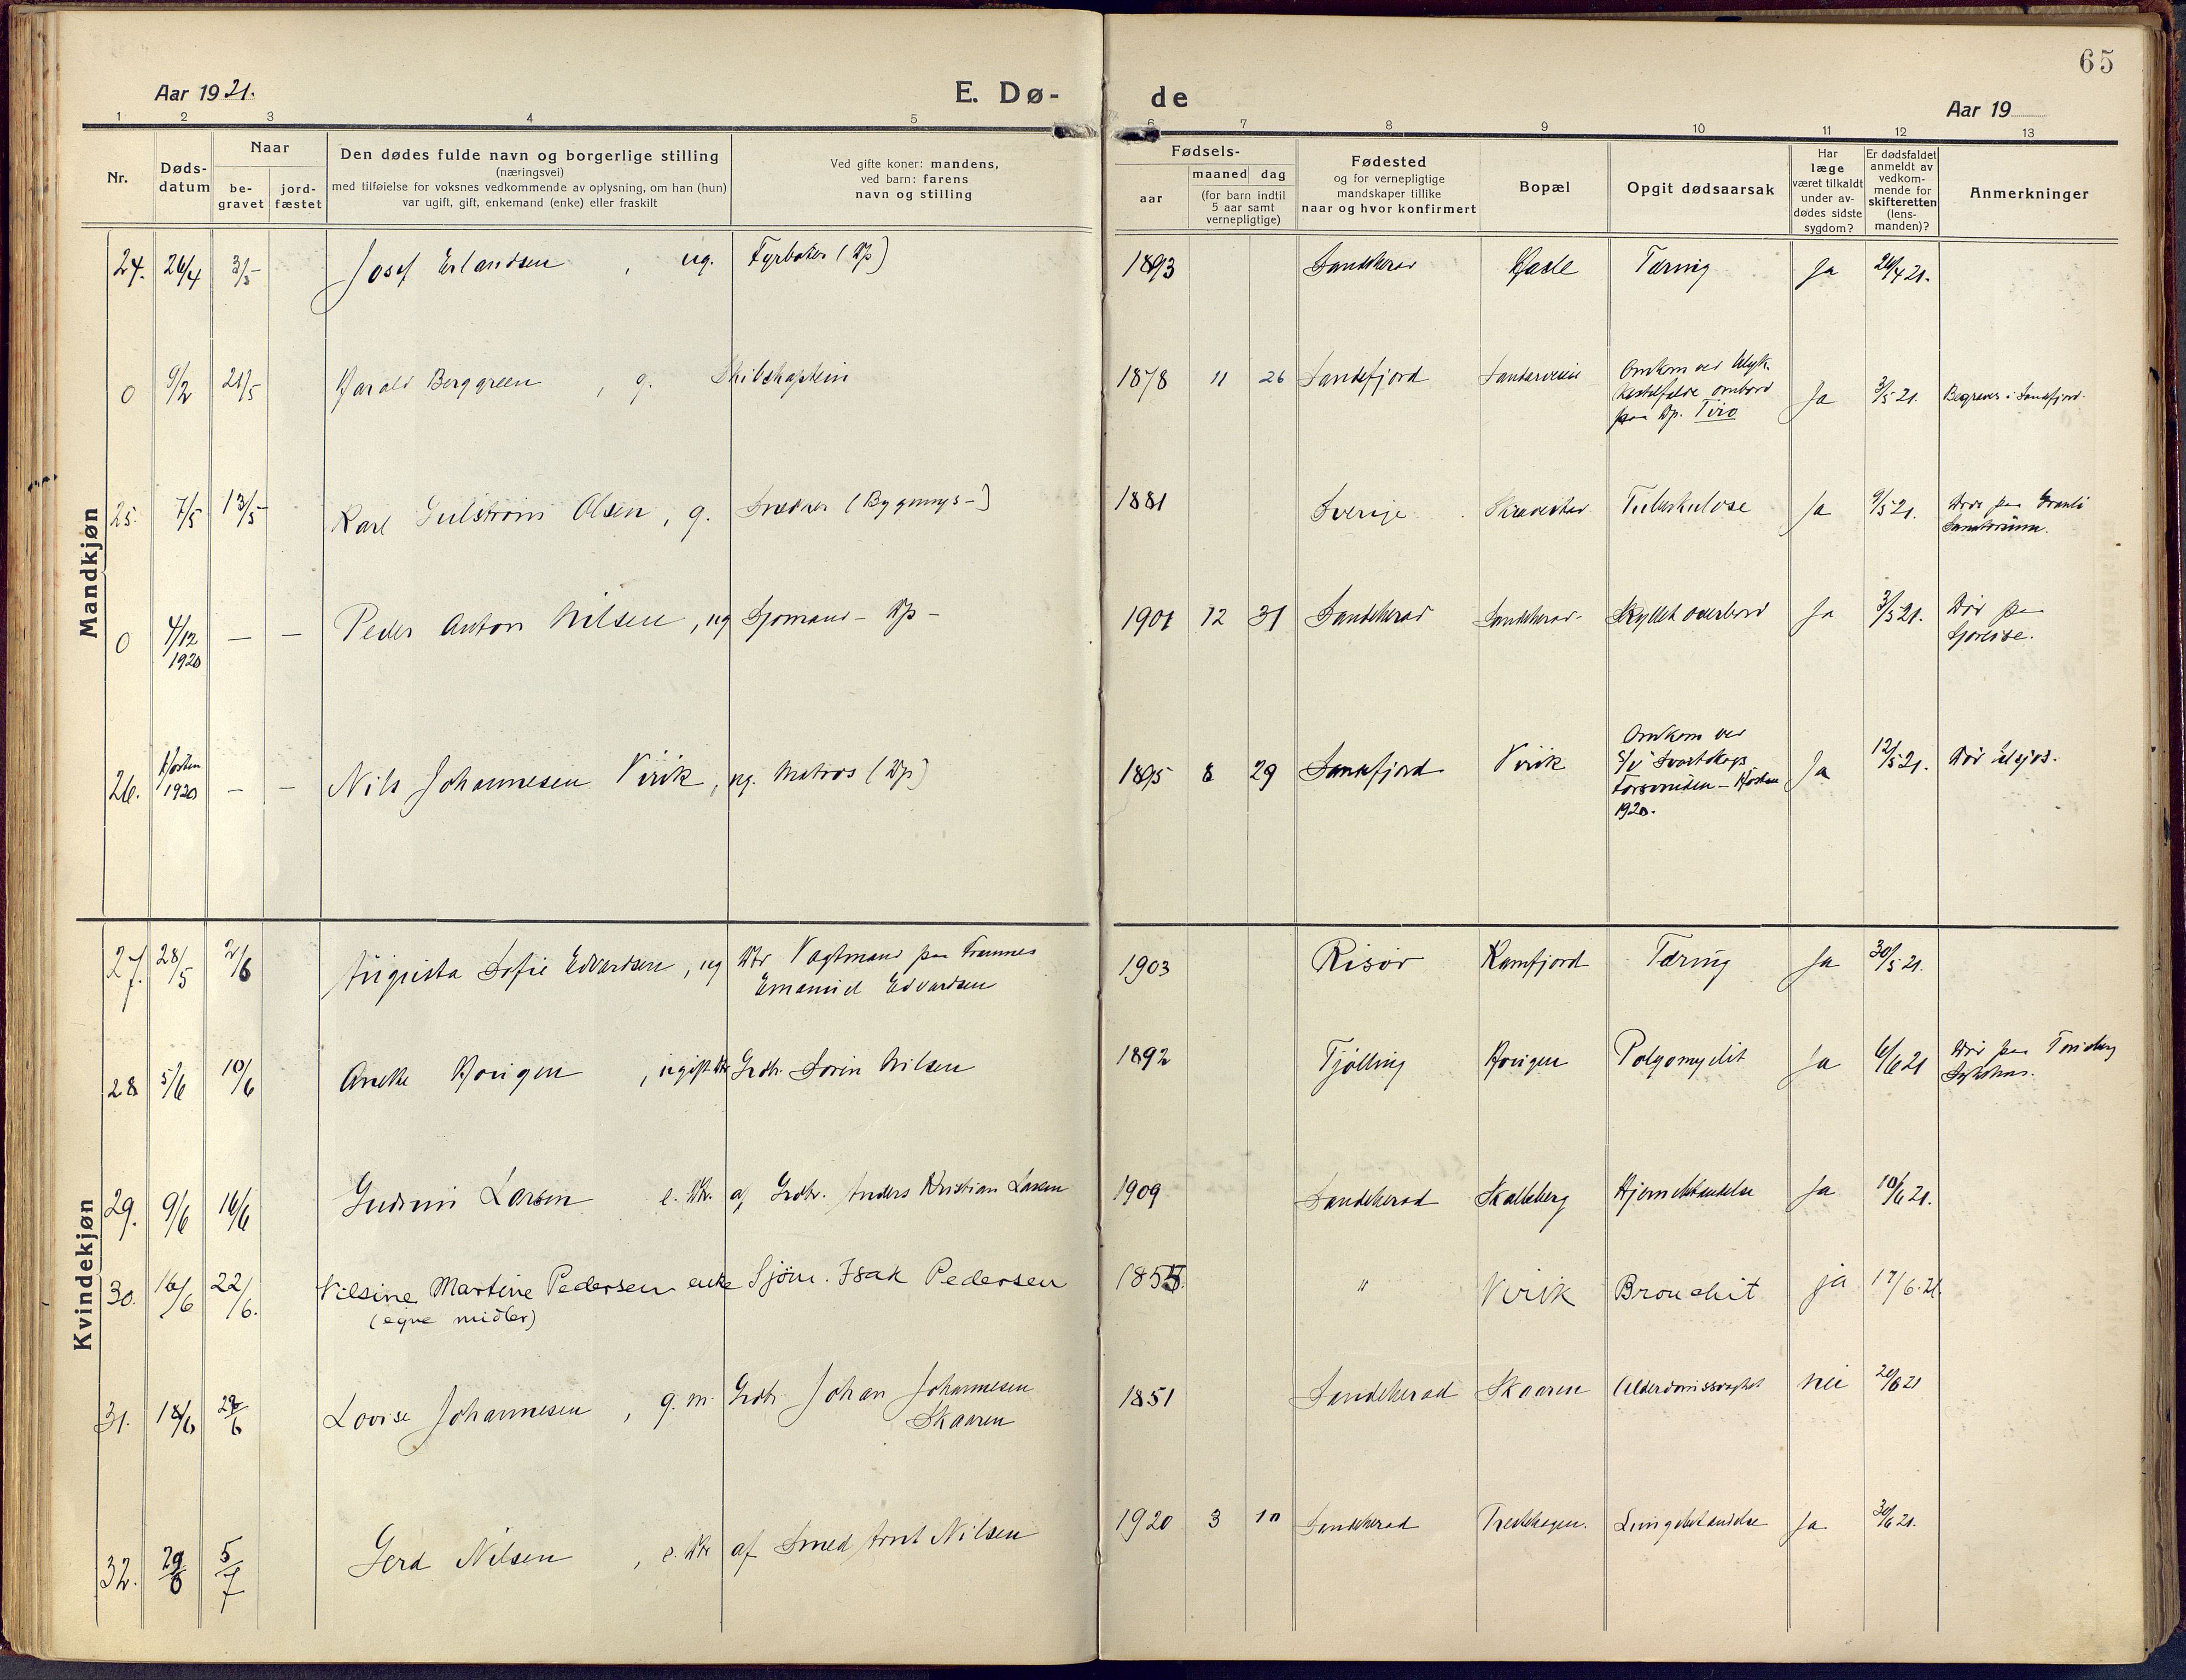 65
Aar 1921.
E. Dø-
de
Aar 19
1 2 3 4 5 6 7 8 9 10 11 12 13
Nr.
Døds-
datum
Naar
be-
gravet
jord-
fæstet
Den dødes fulde navn og borgerlige stilling
(næringsvei)
med tilføielse for voksnes vedkommende av oplysning, om han (hun)
var ugift, gift, enkemand (enke) eller fraskilt
Ved gifte koner: mandens,
ved barn: farens
navn og stilling
Fødsels-
aar
maaned dag
(for barn indtil
5 aar samt
vernepligtige)
Fødested
og for vernepligtige
mandskaper tillike
naar og hvor konfirmert
Bopæl
Opgit dødsaarsak
Har
læge
været tilkaldt
under av-
dødes sidste
sygdom?
Er dødsfaldet
anmeldt av
vedkom-
mende for
skifteretten
(lens-
manden)?
Anmerkninger
Mandkjøn
24. 26/4 3/5 Josef Erlandsen, ug. Fyrbøter 1893 Sandeherad Hasle Tæring Ja 26/4 21.
0 9/2 21/5 Harald Berggreen, g. Skibskaptein 1878 11 26 Sandefjord
Omkom ved Ulyk-
kestilfælde ombord
paa Dp. Tiro
Ja 3/5 21. Begravet i Sandefjord.
25. 7/5 13/5 Karl Gulstrøm Olsen, g. Snedker (Bygnings-) 1881 Sverige Skravestad Tuberkulose Ja 9/5 21.
Døde paa Granli
Sanatorium.
0 4/12 1920 — — Peder Anton Nilsen, ug Sjømand 1901 12 31 Sandeherad Sandeherad Skyllet overbord Ja 3/5 21.
Død paa
Sjøreise.
26. Høsten 1920 — — Nils Johannesen Virik, ug. Matros 1895 8 29 Sandefjord Virik
Omkom ved
S/S Svartskogs
Forsvinden — Høsten
1920.
Ja 12/5 21. Død tilsjøs.
Kvindekjøn
27. 28/5 2/6 Augusta Sofie Edvardsen, ug Dtr. Vagtmand paa Framnes
Emanuel Edvardsen
1903 Risør Kamfjord Tæring Ja 30/5 21.
28 5/6 10/6 Anette Haugen, ugift Dtr Grdbr. Søren Nilsen 1892 Tjølling Haugen Polyomyelit Ja 6/6 21
Død paa Tønsberg
Sykehus.
29. 9/6 16/6 Gudrun Larsen e. Dtr. af Grdbr. Anders Kristian Larsen 1909 Sandeherad Skalleberg Hjernebetændelse Ja 10/6 21.
30. 16/6 22/6. Nilsine Martine Pedersen enke Sjøm. Isak Pedersen
(egne midler)
1855. " Virik Bronchit ja 17/6. 21.
31. 18/6 Lovise Johannesen, g. m. Grdbr. Johan Johannesen
Skaaren
1851 Sandeherad Skaaren Alderdomssvaghet nei 20/6 21
32. 29/6 5/7 Gerd Nilsen, e. Dtr af Smed Arnt Nilsen 1920 3 10 Sandeherad Lungebetændelse Ja 30/6 21.